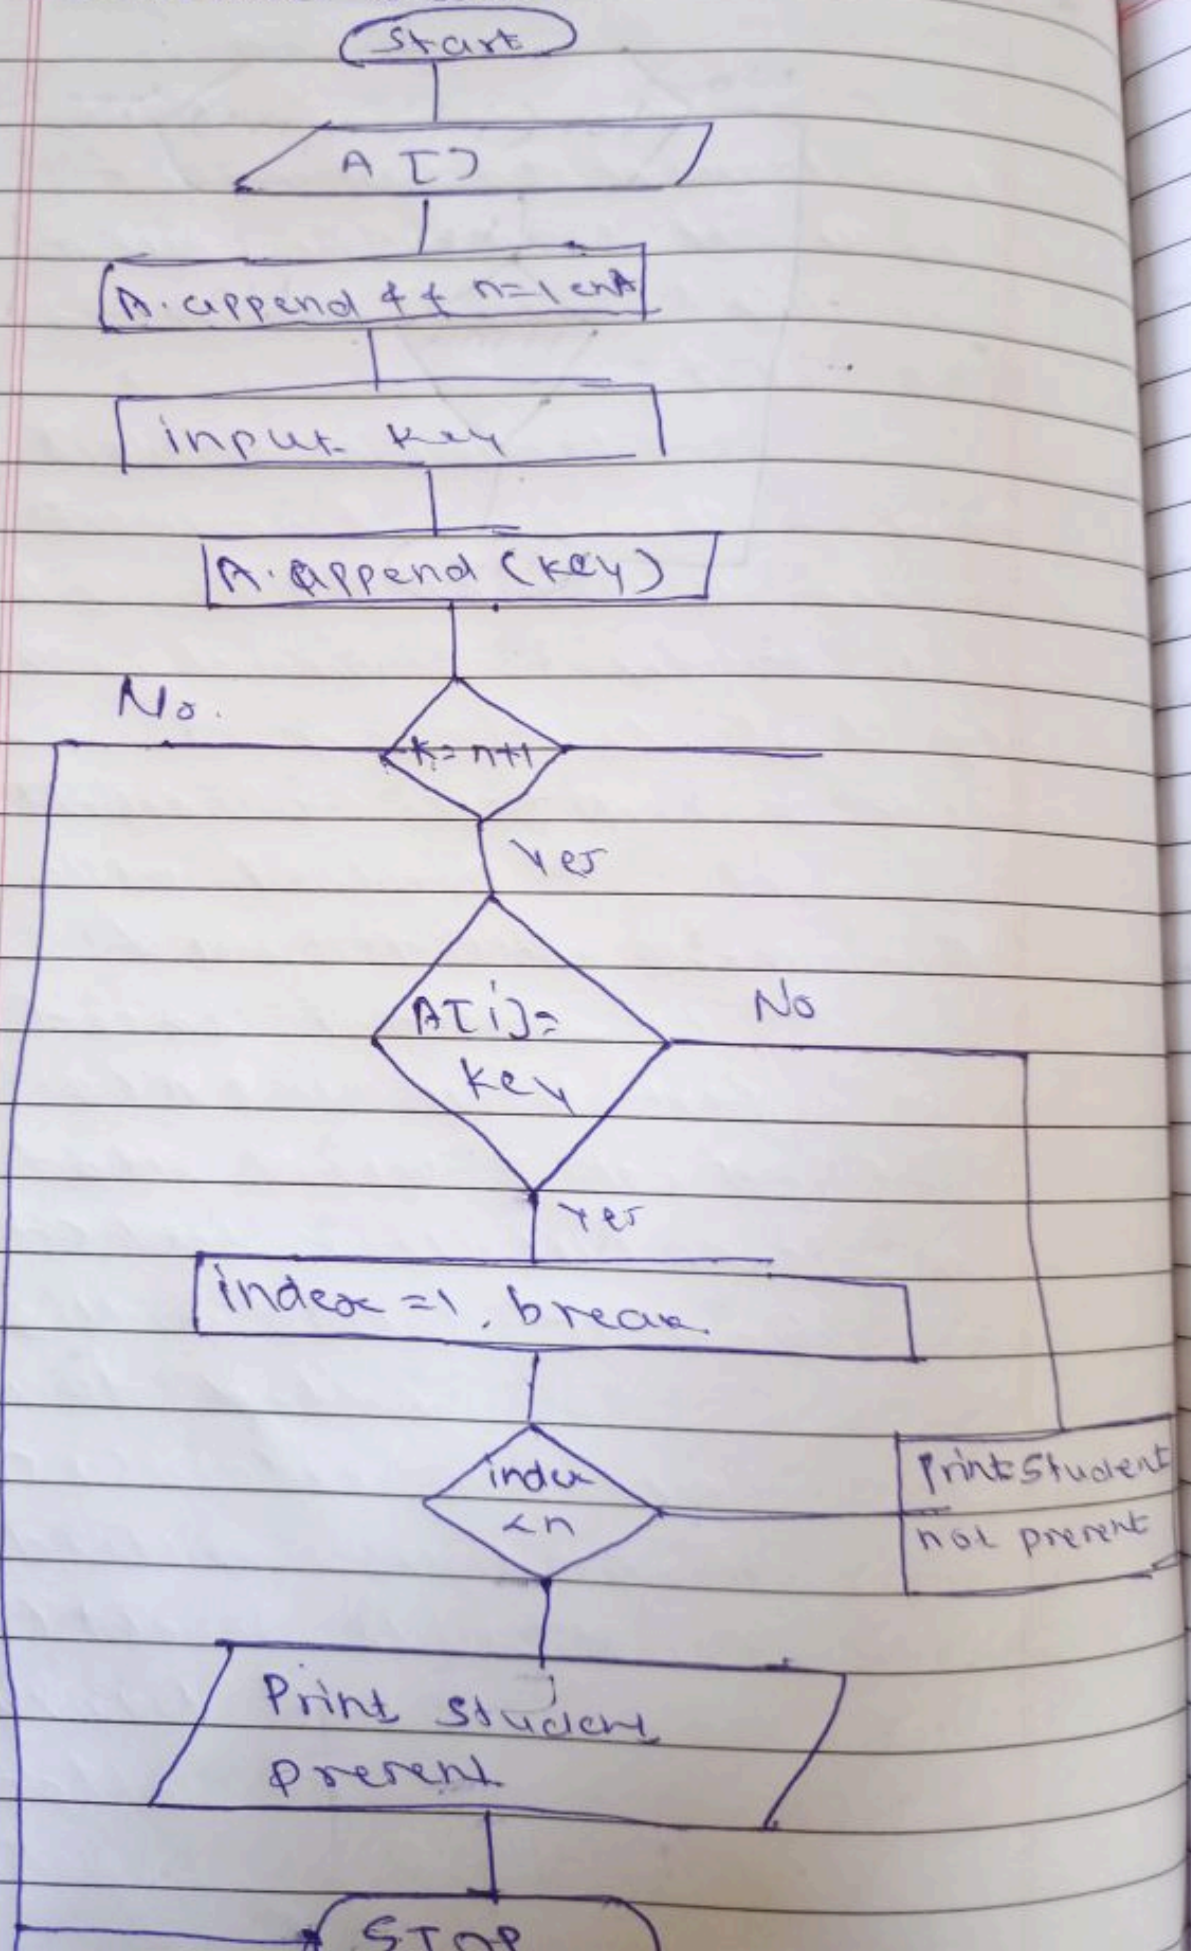 Start
A []
A. append && n=lenA
input key
A. append (key)
No.
k= n+1
Yes
A[i]=
key
No
Yes
index =1, break
index
<n
Print Student
not present
Print student
present
STOP